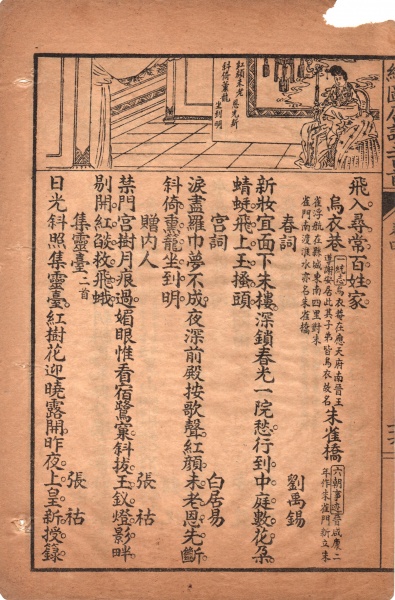 紅顏未老
恩先斷
斜倚薰籠
坐到明
飛入尋常百姓家
烏衣巷 一統志烏衣巷在應天府南晉王導謝安居此其子弟皆烏衣故名 朱雀橋 六朝事迹晉咸康二年作朱雀門新立朱
雀浮航在縣城東南四里對朱雀門南渡淮水亦名朱雀橋
春詞 劉禹錫
新妝宜面下朱樓。深鎖春光一院愁。行到中庭數花朵。
蜻蜓飛上玉搔頭
宮詞 白居易
淚盡羅巾夢不成。夜深前殿按歌聲。紅顏未老恩先斷。
斜倚熏籠坐到明
贈內人 張祜
禁門宮樹月痕過。媚眼惟看宿鷺窠。斜拔玉釵燈影畔。
剔開紅燄救飛蛾。
集靈臺二首 張祜
日光斜照集靈臺。紅樹花迎曉露開。昨夜上皇新授籙